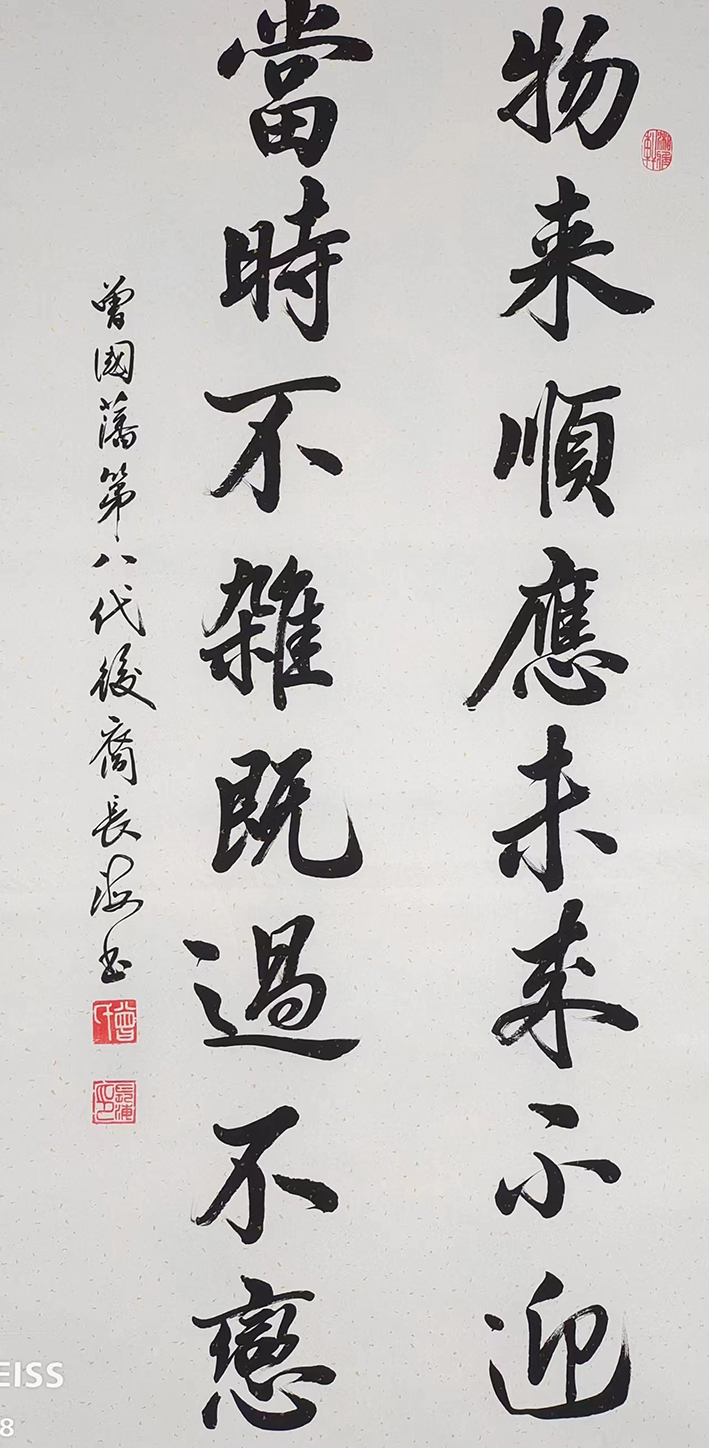 物来順應未来不迎
當時不雜既過不戀
曾國藩第八代後裔長海书
曾氏
長海印
EISS
8